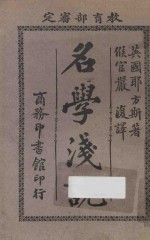 教育部審定
英國耶方斯著
侯官嚴復譯
名學淺說
商務印書館印行